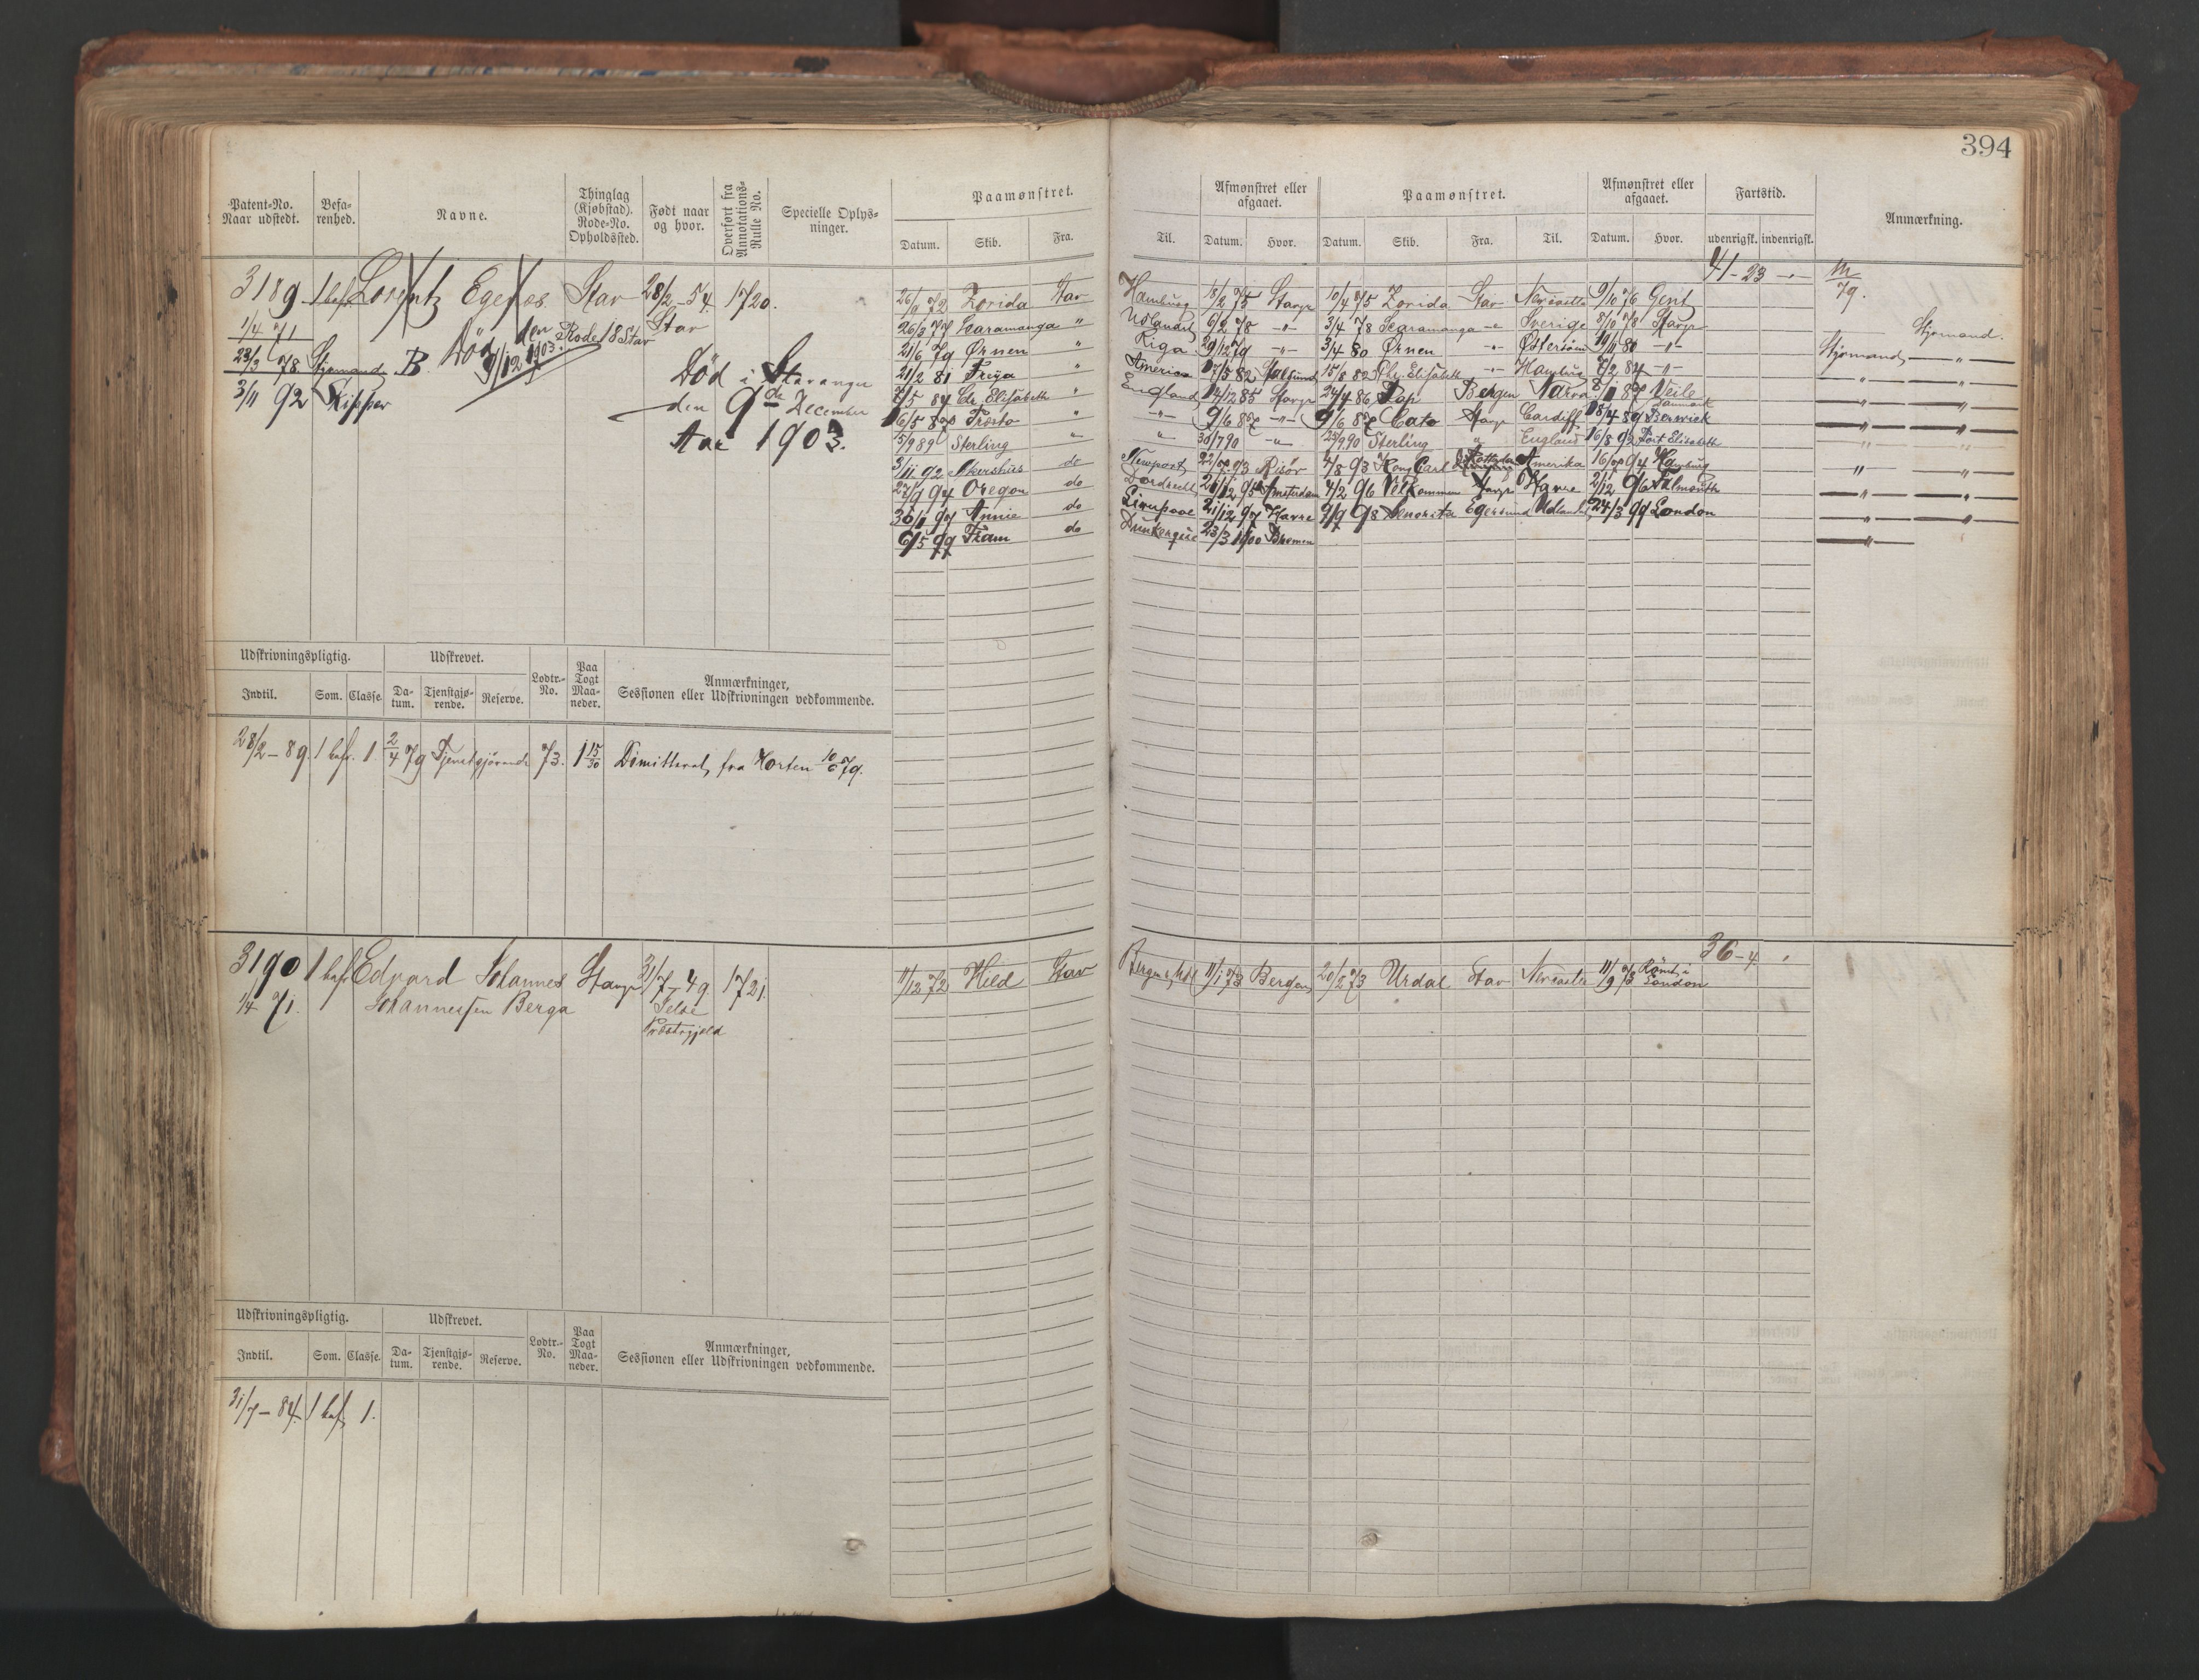 394
Patent-No. Naar udstedt. Befa- renhed. Navne. Thinglag (Kjøbstad). Rode-No. Opholdssted. Født naar og hvor. Overført fra Annotations- Rulle No. Specielle Oplys- ninger. Paamønstret. Datum. Skib. Fra.
Til. Afmønstret eller afgaaet. Datum. Hvor. Paamønstret. Datum. Skib. Fra. Til. Afmønstret eller afgaaet. Datum. Hvor. Fartstid. udenrigsk. indenrigsk. Anmærkning.
3189 1 bef Lorentz Egenes Stav 28/2-54. 1720.
Stav
1/4 71
Död den 9/12 1903. Rode 18 Stav
23/3 78 Styrmand B.
3/11 92 Skipper
Död i Stavanger
den 9de December
Aar 1903.
41-23
79.
26/9 72 Zorida Stav Hamburg 18/2 75 Stavgr 10/4 75 Zorida Stav Newcastle 9/10 76 Gent
26/3 77 Scaramanga " Udlandet 6/2 78 -"- 3/4 78 Scaramanga -"- Sverige 8/10 78 Stavgr Styrmand.
21/6 79 Ørnen " Riga 29/12 79 -"- 3/4 80 Ørnen -"- Østersøen 19/11 80 -"- Styrmand -"-
21/2 81 Freya " America 27/5 82 15/8 82 Chr. Elisabeth -"- Hamburg 7/2 84 -"- -"- -"-
7/5 84 Chr. Elisabeth " England 14/12 85 Stavgr 24/4 86 Rap Bergen Narva 8/11 87 Veile Danmark -"- -"-
6/5 87 Trosto " -"- 9/6 87 -"- 9/6 87 Cato Stavgr Cardiff 18/4 89 Berwick -"- -"-
15/9 89 Sterling " " 30/7 90 -"- 25/9 90 Sterling " England 16/8 92 Port Elisabeth " "
3/11 92 Akershus do Newport 93 Risör 4/8 93 Kong Carl Amerika 94 Hamburg " "
27/9 94 Oregon do Dordrecht 21/12 95 Amsterdam 4/2 96 Velkommen Stavgr Havre 2/12 96 Falmouth -"- -"-
30/1 97 Annie do Liverpool 21/12 97 Havre 9/9 98 Senorita Egersund Udlandet 24/3 99 London -"- -"-
6/5 99 Fram do Dunkerque 23/3 1900 Bremen -"-
Udskrivningspligtig. Indtil. Som. Classe. Udskrevet. Da- tum. Tjenstgjø- rende. Reserve. Lodtr.- No. Paa Togt Maa- neder. Anmærkninger, Sessionen eller Udskrivningen vedkommende.
28/2-89. 1 bef. 1 2/4 79 Tjenstgjörende 73. 1 15/30 Dimitteret fra Horten 10/6 79.
3190 1 bef Edvard Johannes Stavgr 31/7-49. 1721.
1/4 71. Johannessen Berga Jelse Præstegjeld
11/12 72 Hild Stav Bergen 11/1 73 Bergen 20/2 73 Urdal Stav Newcastle 11/9 73 Römt i London
36-4
Udskrivningspligtig. Indtil. Som. Classe. Udskrevet. Da- tum. Tjenstgjø- rende. Reserve. Lodtr.- No. Paa Togt Maa- neder. Anmærkninger, Sessionen eller Udskrivningen vedkommende.
31/7-84. 1 bef 1.